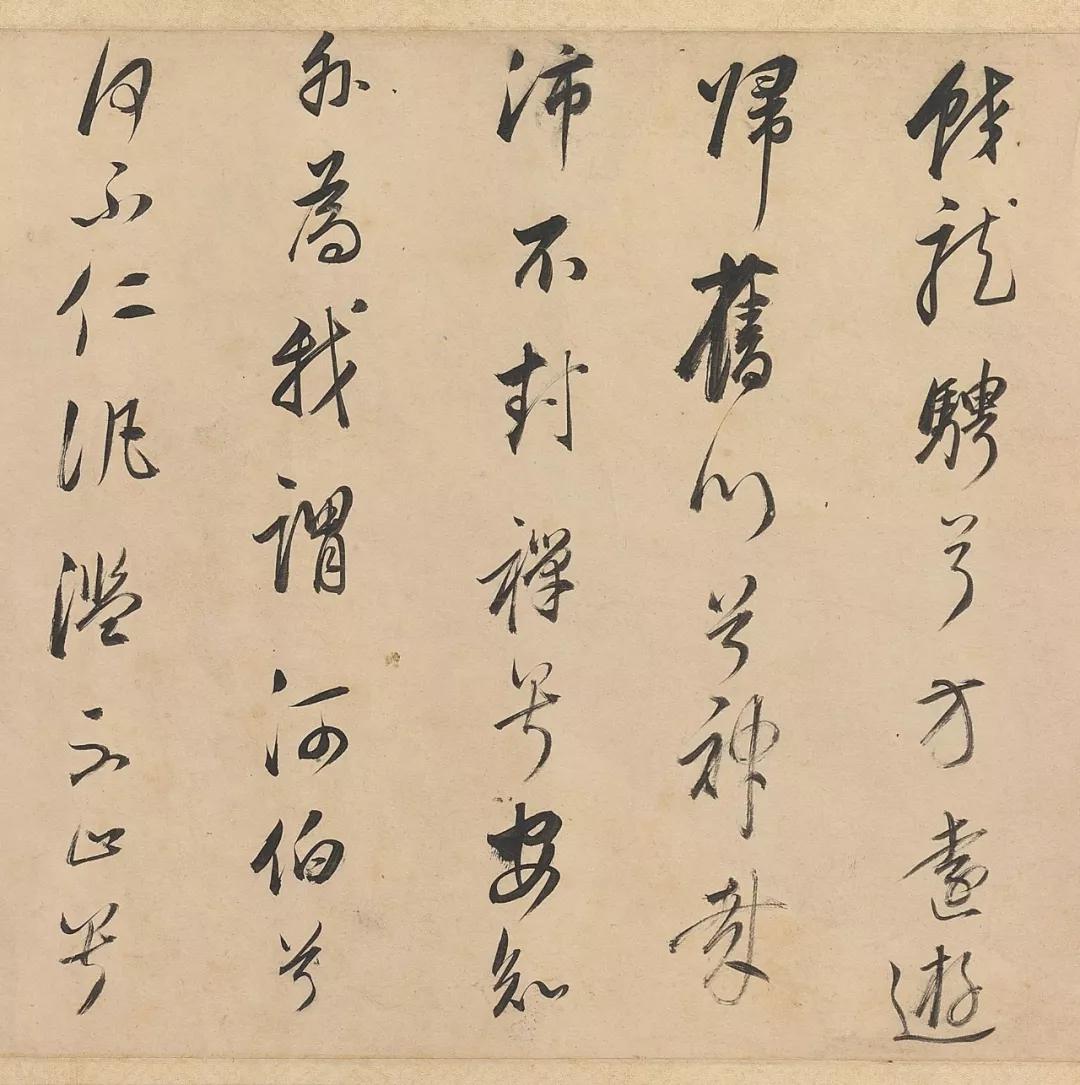 蛟龍騁兮方遠遊
歸舊川兮神哉
沛不封禪兮安知
外為我謂河伯兮
何不仁汎濫不止兮